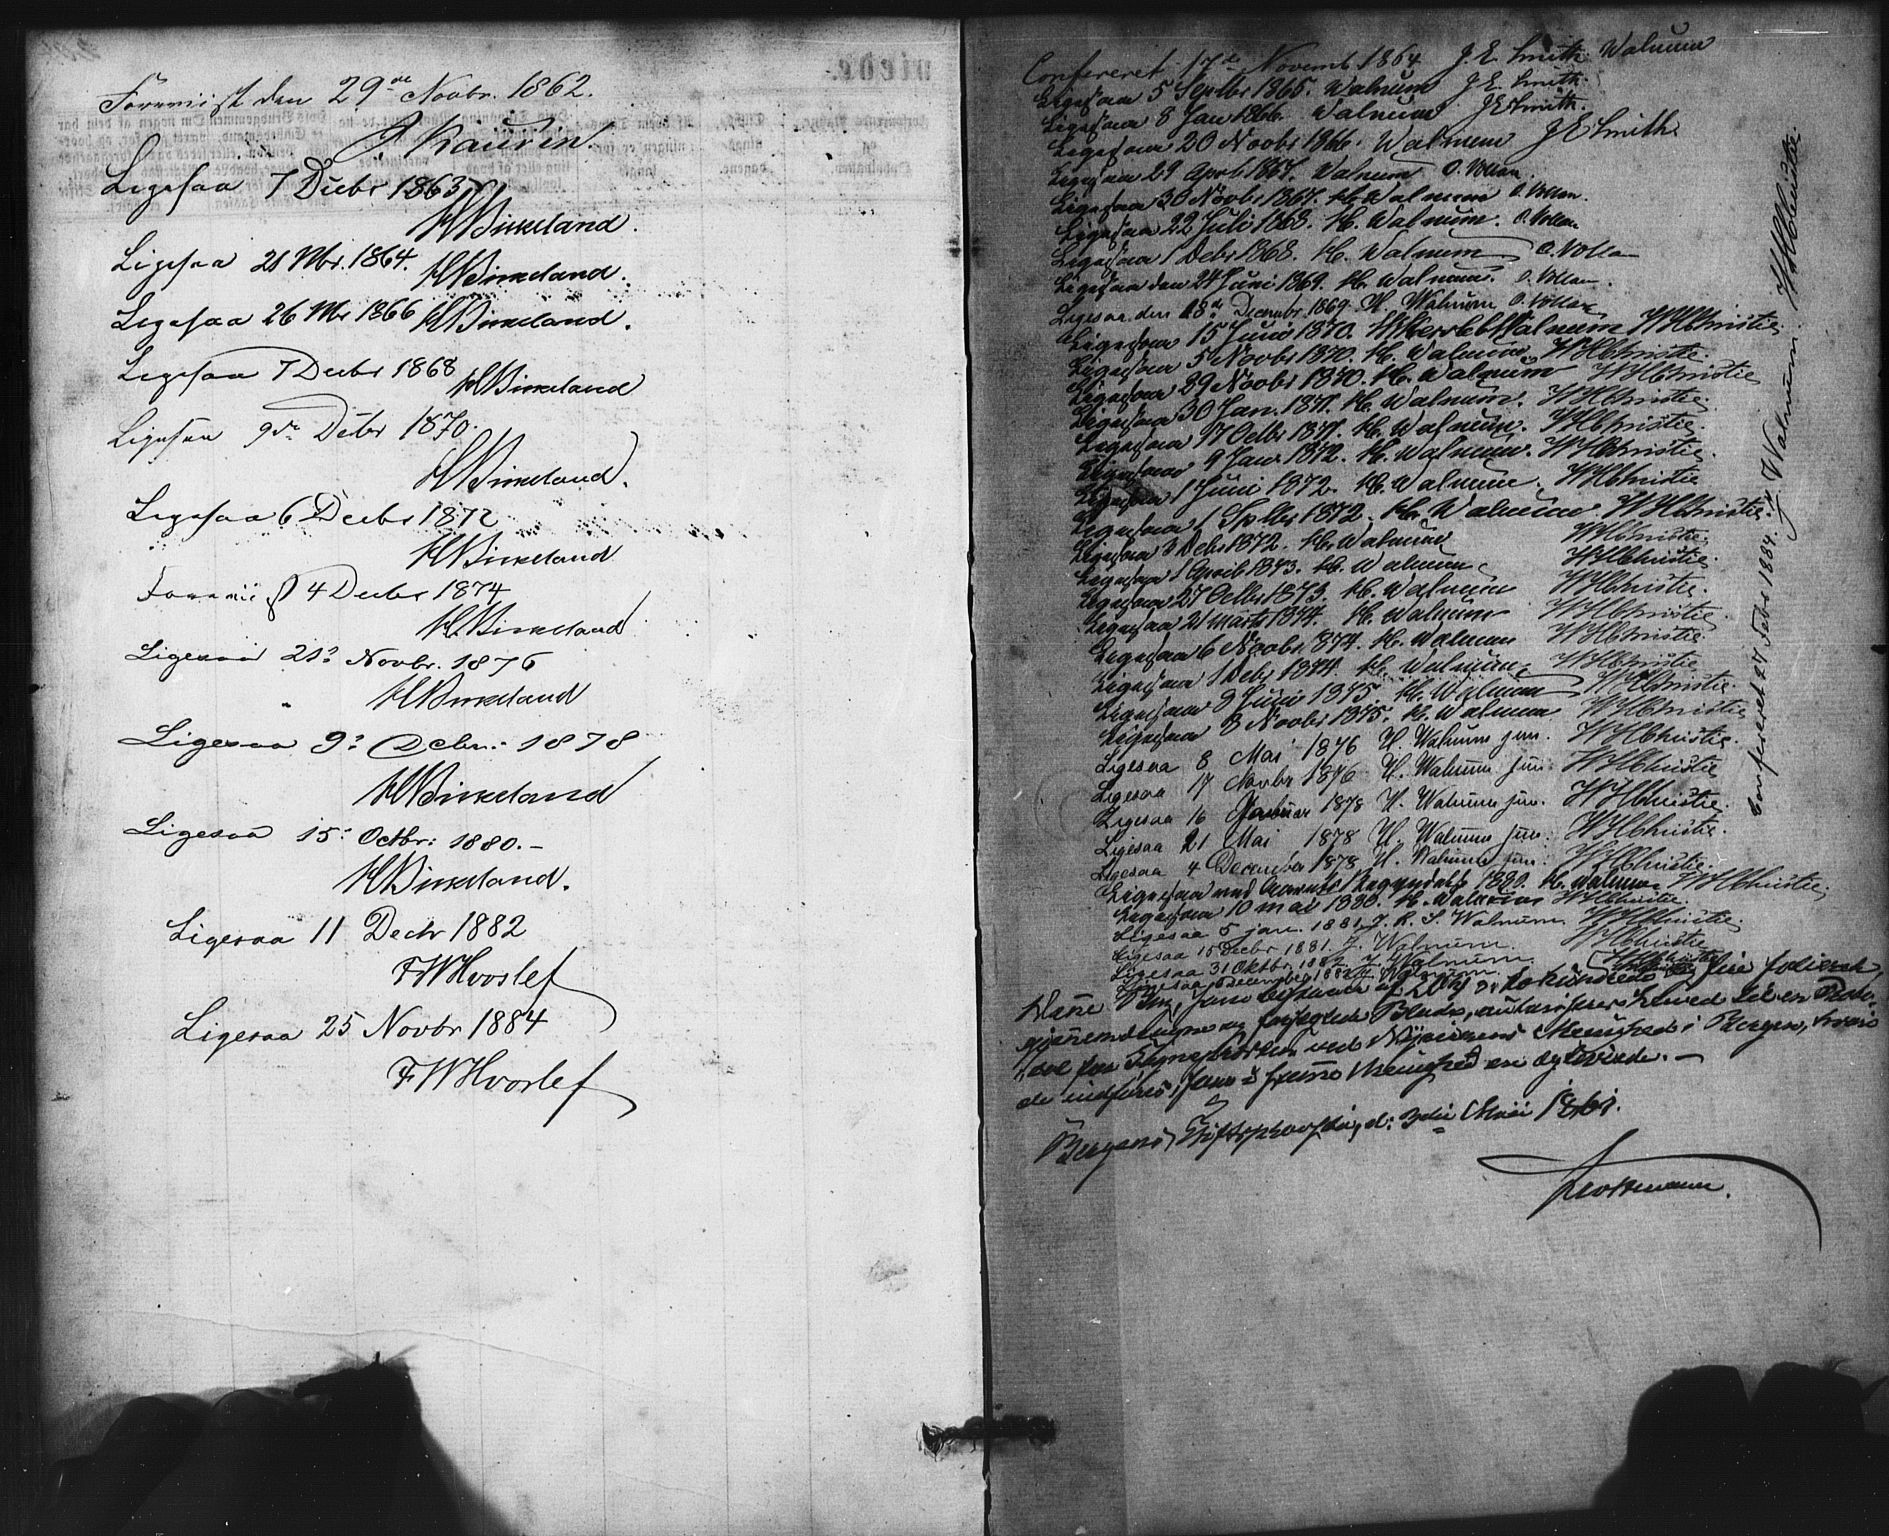 Foreviist den 29de Novbr. 1862.
J Kaurin.
Ligesaa 7 Decbr 1863
H Birkeland.
Ligesaa 21 Nbr. 1864.
H Birkeland.
Ligesaa 26 Nbr 1866 H Birkeland.
Ligesaa 7 Decbr 1868
H Birkeland
Ligesaa 9de Decbr 1870.
H Birkeland.
Ligesaa 6 Decbr 1872
H Birkeland
Foreviist 4 Decbr 1874
H. Birkeland
Ligesaa 21 Novbr. 1876
H Birkeland
Ligesaa 9 Decbr. 1878
H Birkeland
Ligesaa 15 Octbr: 1880.-
H Birkeland.
Ligesaa 11 Decbr 1882
F W Hvoslef
Ligesaa 25 Novbr 1884
F W Hvoslef
Confereret 17de Novemb. 1864 J. E. Smith Walnum
Ligesaa 5 Septbr 1865. Walnum J E Smith.
Ligesaa 8 Jan 1866. Walnum J E Smith.
Ligesaa 20 Novbr 1866. Walnum J E Smith
Ligesaa 29 April 1867. Walnum O. Vollan.
Ligesaa 30 Novbr 1867. H. Walnum O. Vollan.
Ligesaa 22 Juli 1868. H. Walnum. O. Vollan
Ligesaa 1 Debr 1868. H. Walnum O. Vollan
Ligesaa den 24 Juni 1869. H. Walnum. O. Vollan.
Ligesaa den 18de Decembr 1869. H. Walnum O. Vollan
Ligesaa 15 Juni 1870. H Walnum W H Christie.
Ligesaa 5 Novbr 1870. H. Walnum. W H Christie.
Ligesaa 29 Novbr 1870. H. Walnum W H Christie
Ligesaa 30 Jan. 1871. H. Walnum. W H Christie.
Ligesaa 17 Octbr 1871. H. Walnum. W H Christie.
Ligesaa 9 Jan 1872. H. Walnum. W H Christie.
Ligesaa 1 Juni 1872. H. Walnum. W H Christie
Ligesaa 1 Septbr 1872. H. Walnum W H Christie.
Ligesaa 3 Debr 1872. H. Walnum W H Christie.
Ligesaa 1 April 1873. H. Walnum. W H Christie.
Ligesaa 27 Octbr 1873. H. Walnum W H Christie.
Ligesaa 21 Marts 1874. H. Walnum W H Christie.
Ligesaa 6 Novbr 1874. H. Walnum W H Christie
Ligesaa 1 Debr 1874. H. Walnum. W H Christie
Ligesaa 9 Juni 1875. H. Walnum W H Christie
Ligesaa 8 Novbr 1875. H. Walnum W H Christie
Ligesaa 8 Mai 1876 H. Walnum jun. W H Christie.
Ligesaa 17 Novbr 1876 H. Walnum jun. W H Christie
Ligesaa 16 Januar 1878 H. Walnum jun. W H Christie.
Ligesaa 21 Mai 1878 H. Walnum jun. W H Christie.
Ligesaa 4 December 1878 H. Walnum jun. W H Christie.
Ligesaa ved Aarets Begyndelse 1880. H. Walnum W H Christie.
Ligesaa 10 mai 1880. H. Walnum W H Christie.
Ligesaa 5 jan. 1881. J. R. S. Walnum W H Christie.
Ligesaa 15 Decbr 1881. J. Walnum. W H Christie
Ligesaa 31 Oktbr 1882 J Walnum W H Christie
Ligesaa December 1882 J. Walnum.
Confereret 27 Febr 1884. J. Walnum. W H Christie.
Denne Bog, som bestaaer af 204 er: tohundrede og fire folierede,
gjennemdragne og forseglede Blade, autoriseres herved til en
for ved Nykirkens Menighed i Bergen, hvori
de indføres, som i samme Menighed ere ægteviede. -
Bergens Stiftsprovsti, d: 3die Mai 1861.